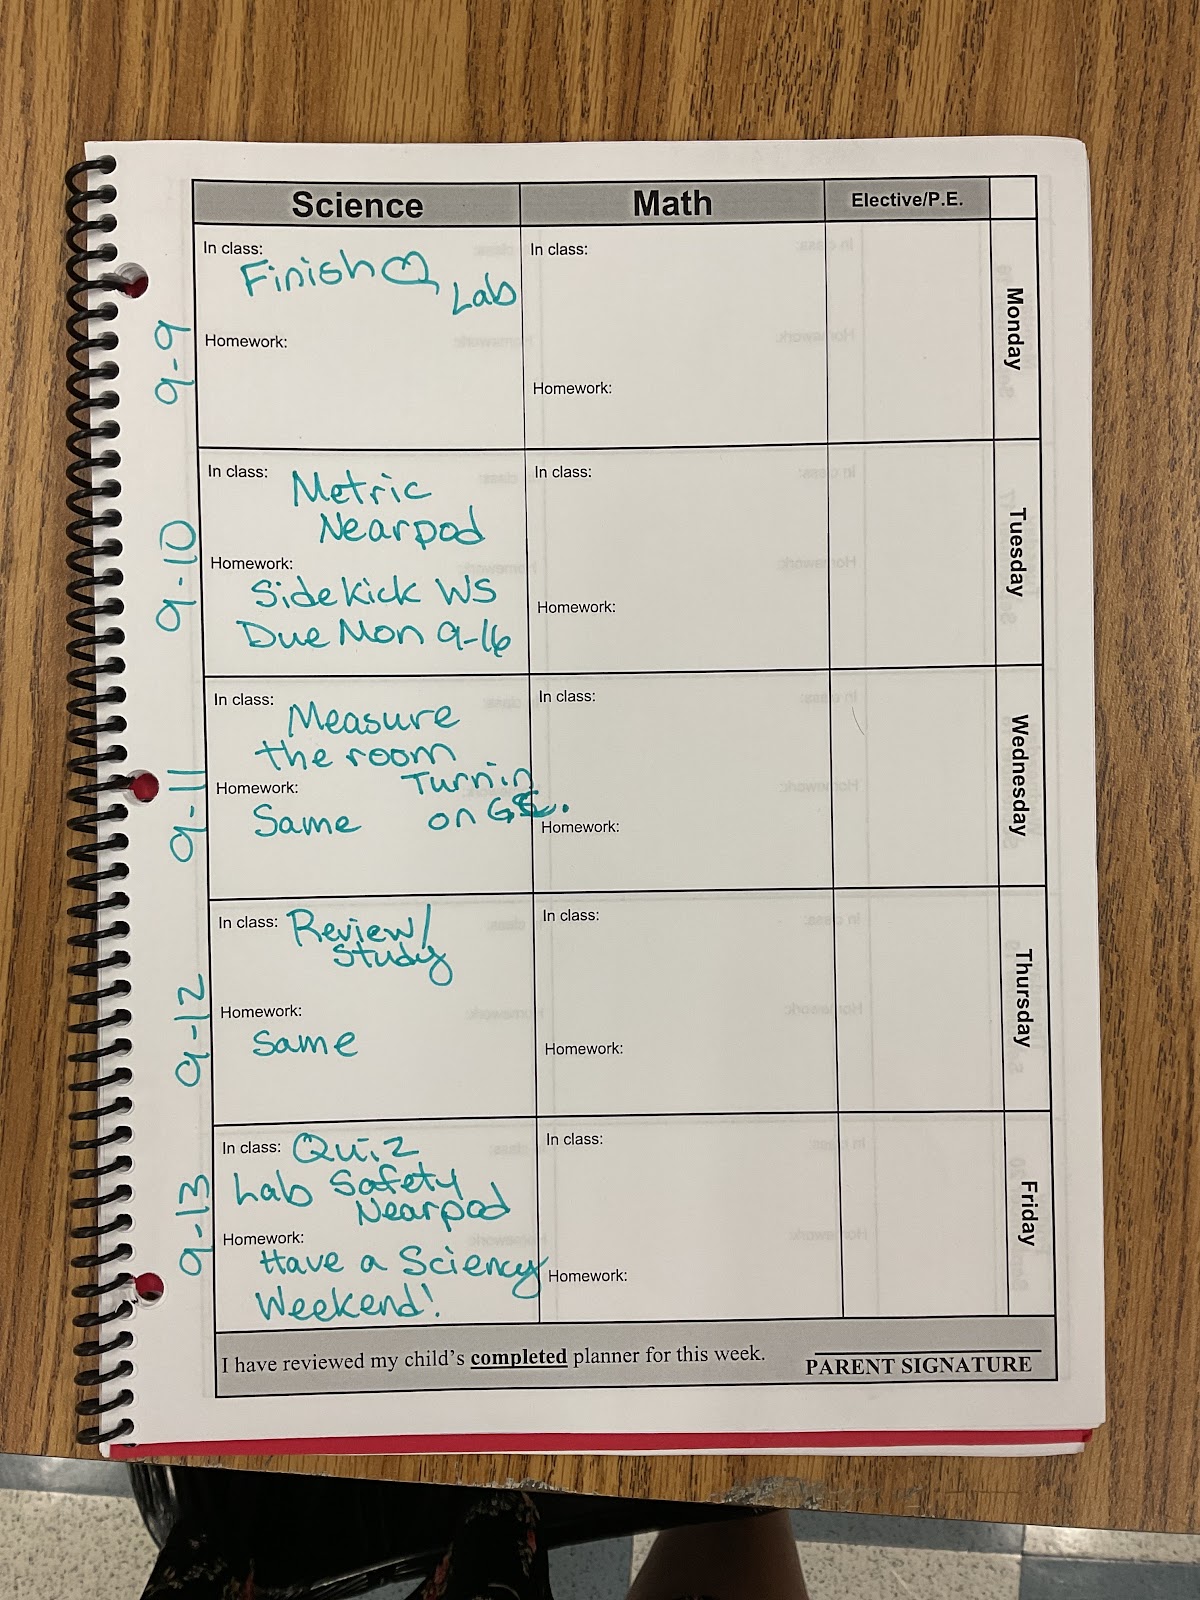 Science Math Elective/P.E.
9-9
In class:
Finish
Lab
Homework:
In class:
Homework:
Monday
9-10
In class:
Metric
Nearpod
Homework:
Sidekick WS
Due Mon 9-16
In class:
Homework:
Tuesday
9-11
In class:
Measure
the room
Turn in
on
Homework:
Same
In class:
Homework:
Wednesday
9-12
In class:
Review/
Study
Homework:
Same
In class:
Homework:
Thursday
9-13
In class: Quiz
Lab Safety
Nearpod
Homework:
Have a Sciency
Weekend!
In class:
Homework:
Friday
I have reviewed my child's completed planner for this week.
PARENT SIGNATURE